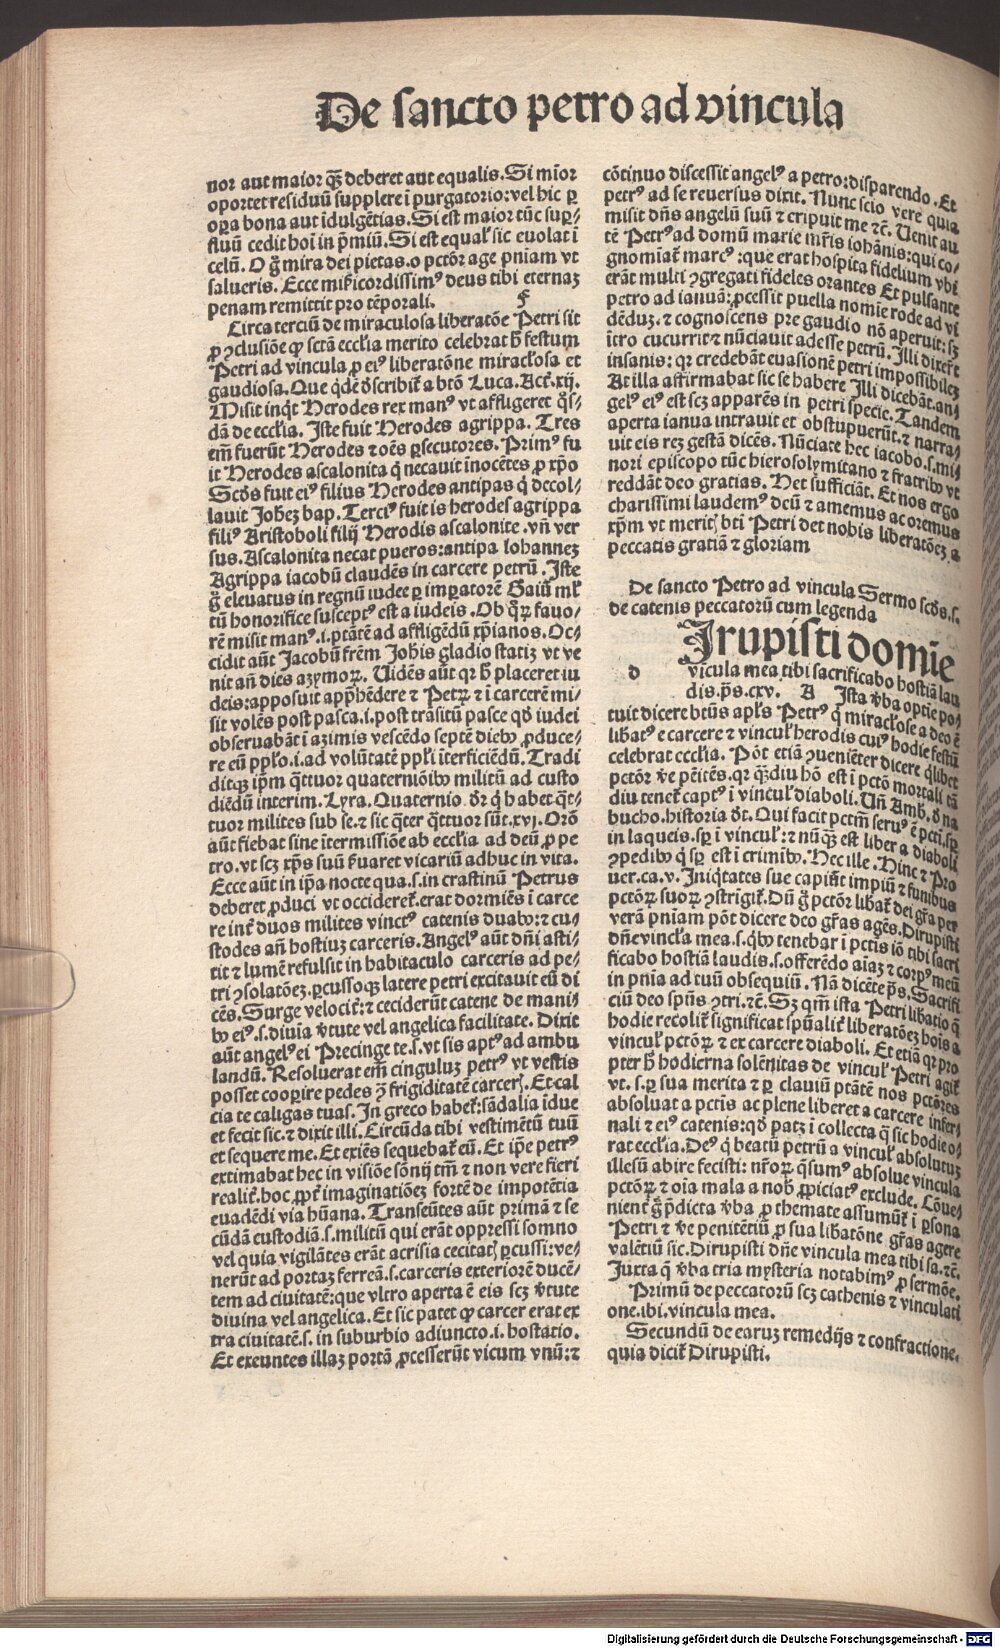 De sancto petro ad vincula
nor aut maior qȝ deberet aut equalis. Si mīor
oportet residuū supplere ī purgatorio: vel hic ꝑ
oꝑa bona aut īdulgētias. Si est maior tūc suꝑ⸗
fluū cedit hoī in p̄miū. Si est equal' sic euolat ī
celū. O ḡ mira dei pietas. o pctōr age pniam vt
salueris. Ecce mik̄icordissimꝰ deus tibi eternaȝ
penam remittit pro tēporali. F
Circa terciū de miraculosa liberatōe Petri sit
ꝓ ꝯclusiōe ꝙ sctā eccl'ia merito celebrat h̄ festum
Petri ad vincula ꝓ eiꝰ liberatōne miracl'osa et
gaudiosa. Que qd̄e d̄scribit' a btō Luca. Act'. xij.
Misit inq̇t Herodes rex manꝰ vt affligeret q̇s⸗
dā de eccl'ia. Iste fuit Herodes agrippa. Tres
em̄ fuerūt Herodes ⁊ oēs ꝑsecutores. Primꝰ fu
it Herodes ascalonita q̇ necauit inocētes ꝓ xp̄o
Scd̄s fuit eiꝰ filius Herodes antipas q̇ decol⸗
lauit Joh̄eȝ bap. Terciꝰ fuit is herodes agrippa
filiꝰ Aristoboli filij Herodis ascalonite. vn̄ ver
sus. Ascalonita necat pueros: antipa Iohanneȝ
Agrippa iacobū claudēs in carcere petrū. Iste
ḡ eleuatus in regnū iudee ꝑ imꝑatorē Gaiū ml'
tū honorifice susceptꝰ est a iudeis. Ob q̊ꝝ fauo⸗
rē misit manꝰ. i. ptātē ad affligēdū xp̄ianos. Oc⸗
cidit aūt Jacobū frēm Joh̄is gladio statiȝ vt ve
nit an̄ dies azymoꝝ. Uidēs aūt qꝛ h̄ placeret iu
deis: apposuit app̄hēdere ⁊ Petꝝ ⁊ ī carcerē mi⸗
sit volēs post pasca. i. post trāsitū pasce qd̄ iudei
obseruabāt ī azimis vescēdo septē dieb⁹ ꝓduce⸗
re eū ppl'o. i. ad volūtatē ppl'i īterficiēdū. Tradi
ditqȝ ip̄m q̇ttuor quaterniōib⁹ militū ad custo
diēdū interim. Lyra. Quaternio d̄r q̇ habet q̇t⸗
tuor milites sub se. ⁊ sic q̇ter q̇ttuor sūt. xvj. Orō
aūt fiebat sine ītermissiōe ab eccl'ia ad deū ꝓ pe
tro. vt scȝ xp̄s suū s̄uaret vicariū adhuc in vita.
Ecce aūt in ip̄a nocte qua. s. in crastinū Petrus
deberet ꝓduci vt occideret'. erat dormiēs ī carce
re int' duos milites vinctꝰ catenis duab⁹: ⁊ cu⸗
stodes an̄ hostiuȝ carceris. Angelꝰ aūt dn̄i asti⸗
tit ⁊ lumē refulsit in habitaculo carceris ad pe⸗
tri ꝯsolatōeȝ. ꝑcussoqȝ latere petri excitauit eū di
cēs. Surge velocit': ⁊ ceciderūt catene de mani⸗
b⁹ eiꝰ. s. diuīa v̄tute vel angelica facilitate. Dixit
aūt angelꝰ ei Precinge te. s. vt sis aptꝰ ad ambu
landū. Resoluerat em̄ cinguluȝ petrꝰ vt vestis
posset cooꝑire pedes ꝯ̄ frigiditatē carceꝝ. Et cal
cia te caligas tuas. In greco habet': sādalia īdue
et fecit sic. ⁊ dixit illi. Circūda tibi vestimētū tuū
et sequere me. Et exiēs sequebat' eū. Et ip̄e petrꝰ
extimabat hec in visiōe sōnij tm̄ ⁊ non vere fieri
realit'. hoc ꝓpt' imaginatiōeȝ fortē de impotētia
euadēdi via hūana. Transeūtes aūt primā ⁊ se
cūdā custodiā. s. militū qui erāt oppressi somno
vel quia vigilātes erāt acrisia cecitatꝭ ꝑcussi: ve⸗
nerūt ad portaȝ ferreā. s. carceris exteriorē ducē⸗
tem ad ciuitatē: que vltro aperta ē eis scȝ v̄tute
diuina vel angelica. Et sic patet ꝙ carcer erat ex
tra ciuitatē. s. in suburbio adiuncto. i. hostatio.
Et exeuntes illaȝ portā ꝓcesserūt vicum vnū: ⁊
cōtinuo discessit angelꝰ a petro: disparendo. Et
petrꝰ ad se reuersus dixit. Nunc scio vere quia
misit dn̄s angelū suū ⁊ eripuit me ⁊c̄. Uenit au
tē Petrꝰ ad domū marie mr̄is iohānis: qui co⸗
gnomīat' marcꝰ: que erat hospita fidelium vbi
erāt multi ꝯgregati fideles orantes Et pulsante
petro ad ianuā: ꝓcessit puella nomīe rode ad vi
dēduȝ. ⁊ cognoscens pre gaudio nō aperuit: sȝ
ītro cucurrit ⁊ nūciauit adesse petrū. Illi dixer̄t
insanis: qꝛ credebāt euasionē petri impossibileȝ
At illa affirmabat sic se habere Illi dicebāt. an⸗
gelꝰ eiꝰ est scȝ apparēs in petri specie. Tandem
aperta ianua intrauit et obstupuerūt. ⁊ narra⸗
uit eis reȝ gestā dicēs. Nūciate hec iacobo. s. mi⸗
nori episcopo tūc hierosolymitano ⁊ fratrib⁹ vt
reddāt deo gratias. Hec sufficiāt. Et nos ergo
charissimi laudemꝰ deū ⁊ amemus ac oremus
xp̄m vt meritꝭ bti Petri det nobis liberatōeȝ a
peccatis gratiā ⁊ gloriam
De sancto Petro ad vincula Sermo scd̄s. s.
de catenis peccatorū cum legenda
d Irupisti domīe
vīcula mea tibi sacrificabo hostiā lau
dis. ps̄. cxv. A Ista v̄ba optīe po⸗
tuit dicere btūs apl's Petrꝰ q̇ miracl'ose a deo ē
lib̄atꝰ e carcere ⁊ vincul' herodis cuiꝰ hodie festū
celebrat eccl'ia. Pōt etiā ꝯueniēter dicere q̇libet
pctōr v̄e pēitēs. qꝛ qȝdiu hō est ī pctō mortali tā
diu tenet' captꝰ ī vincul' diaboli. Un̄ Amb. d̄ na
bucho. historia d̄t. Qui facit pctm̄ seruꝰ ē pcti. sꝑ
in laqueis. sꝑ ī vincul': ⁊ nūqȝ est liber a diaboli
ꝯpedib⁹ q̇ sꝑ est ī crimīb⁹. Hec ille. Hinc ⁊ Pro
uer. ca. v. Iniq̇tates sue capiūt impiū ⁊ funibus
pctōꝝ suoꝝ ꝯstrīgit'. Dū ḡ pctōr libat' dei gr̄a per
verā pniam pōt dicere deo gr̄as agēs. Dirupisti
dn̄e vincl'a mea. s. q̇b⁹ tenebar ī pctis iō tibi sacri
ficabo hostiā laudis. s. offerēdo aīaȝ ⁊ corpꝰ meū
in pnia ad tuū obsequiū. Nā dicēte ps̄. Sacrifi
ciū deo spūs ꝯtri. ⁊c̄. Sȝ qm̄ ista Petri libatio q̄
hodie recolit' significat spūalit' liberatōeȝ hoīs a
vincul' pctōꝝ ⁊ ex carcere diaboli. Et etiā qꝛ pro
pter h̄ hodierna solēnitas de vincul' Petri agit'
vt. s. ꝑ sua merita ⁊ ꝑ clauiū ptātē nos pctōres
absoluat a pctis ac plene liberet a carcere infer⸗
nali ⁊ eiꝰ catenis: qd̄ patȝ ī collecta q̄ sic hodie o⸗
rat eccl'ia. Deꝰ q̇ beatū petrū a vincul' absolutuȝ
illesū abire fecisti: nr̄oꝝ q̄sumꝰ absolue vincula
pctōꝝ ⁊ oīa mala a nob̄ ꝓpiciatꝰ exclude. Cōue⸗
nient' ḡ p̄dicta v̄ba ꝓ themate assumūt' ī ꝑsona
Petri ⁊ v̄e penitētiū ꝓ sua libatōne gr̄as agere
valētiū sic. Dirupisti dn̄e vincula mea tibi sa. ⁊c̄.
Juxta q̄ v̄ba tria mysteria notabimꝰ ꝓ sermōe.
Primū de peccatorū scȝ cathenis ⁊ vinculati
one. ibi. vincula mea.
Secundū de earuȝ remedijs ⁊ confractione.
quia dicit' Dirupisti.
Digitalisierung gefördert durch die Deutsche Forschungsgemeinschaft - DFG